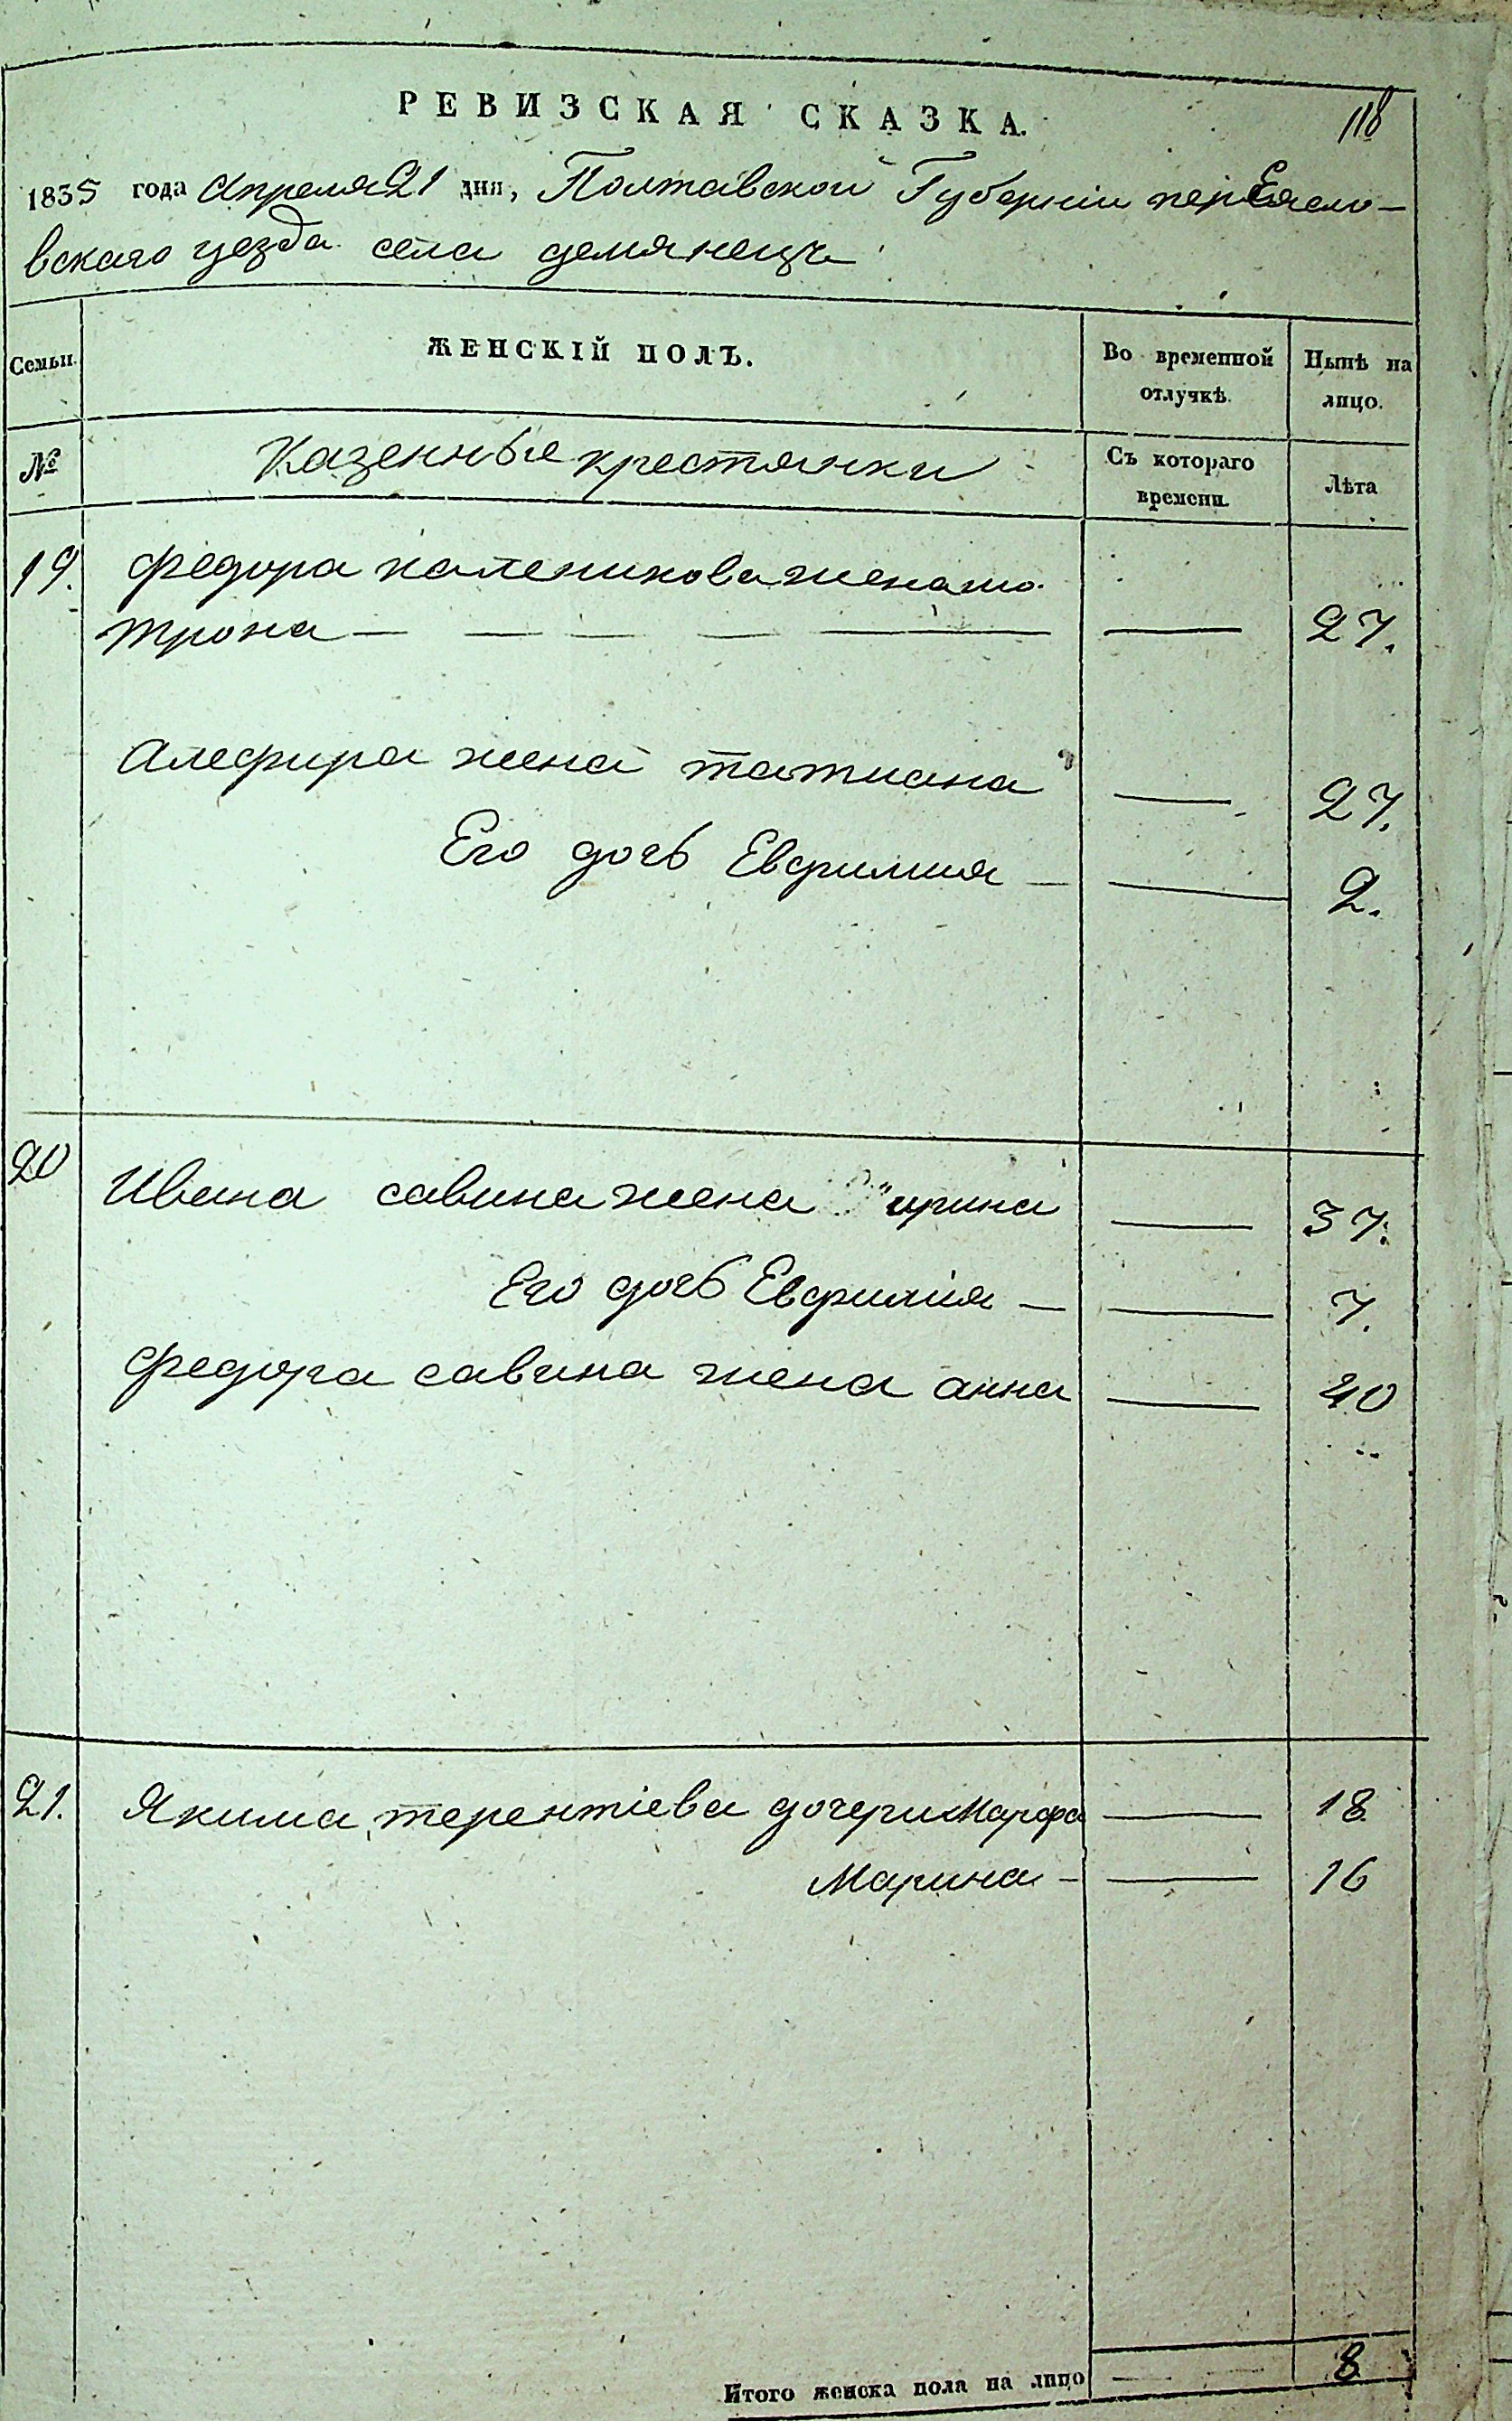 РЕВИЗСКАЯ СКАЗКА.
118
1835 года Апреля 21 дня, Полтавской Губернiи перЕясло-
вскаго уезда села демянецъ
Семьи.
ЖЕНСКІЙ ПОЛЪ.
Во временной отлучкѣ.
Нынѣ на лицо.
№
Казенные крестянки
Съ котораго времени.
Лѣта
19. федора каленикова жена мо-
трона — — — — — — 27.
Алефира жена татиана — 27.
Его дочь Евфимия — — 2.
20 Ивана савина жена ирина — 37.
Его дочь Евфимія — — 7.
федора савина жена анна — 40
21. Якима терентіева дочери Марфа — 18
Марина — — 16
Итого женска пола на лицо — — 8